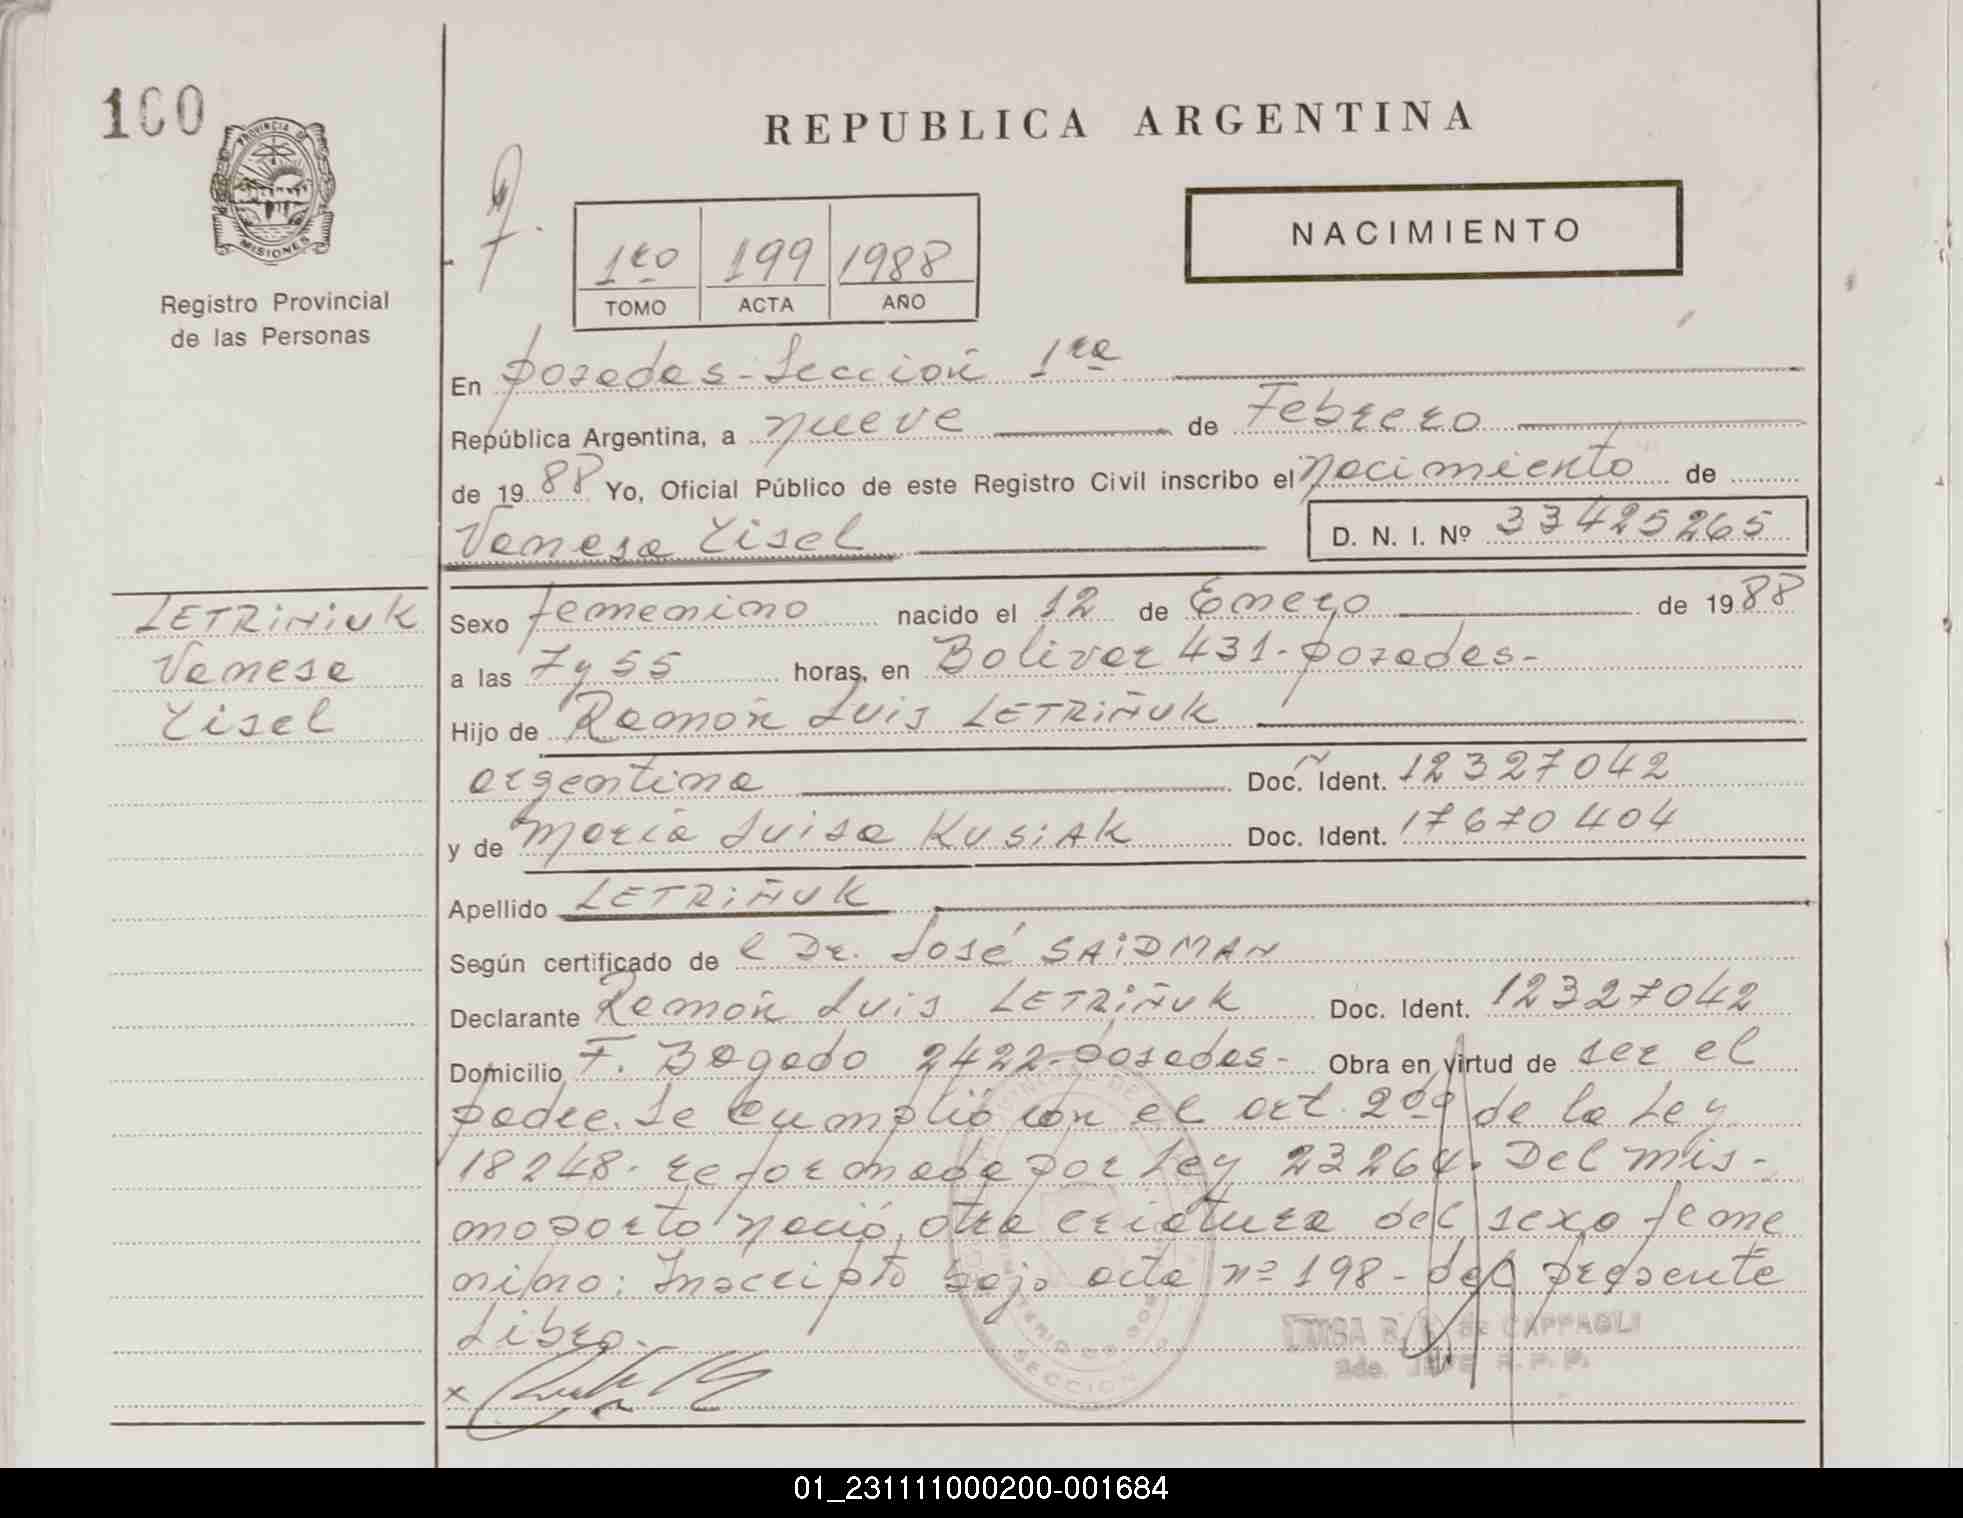 100
PROVINCIA DE
MISIONES
Registro Provincial
de las Personas
REPUBLICA ARGENTINA
NACIMIENTO
1ro 199 1988
TOMO ACTA AÑO
En Posadas - Sección 1ra
República Argentina, a nueve de Febrero
de 1988 Yo, Oficial Público de este Registro Civil inscribo el Nacimiento de
Vanesa Lisel D. N. I. Nº 33425265
LETRIÑUK
Vanesa
Lisel
Sexo femenino nacido el 12 de Enero de 1988
a las 7 y 55 horas, en Bolivar 431 - Posadas -
Hijo de Ramón Luis LETRIÑUK
argentina Doc. Ident. 12327042
y de María Luisa KUSIAK Doc. Ident. 17670404
Apellido LETRIÑUK
Según certificado de l Dr. José SAIDMAN
Declarante Ramón Luis LETRIÑUK Doc. Ident. 12327042
Domicilio F. Bogado 2422 - Posadas - Obra en virtud de ser el
padre. Se cumplió con el art. 2do de la Ley
18248 - reformada por Ley 23264. Del mis-
mo parto nació otra criatura del sexo feme
nino: Inscripto bajo acta nº 198 - del presente
Libro.
LUISA de CAPPAGLI
JEFE R. P. P.
SECCION
01_231111000200-001684